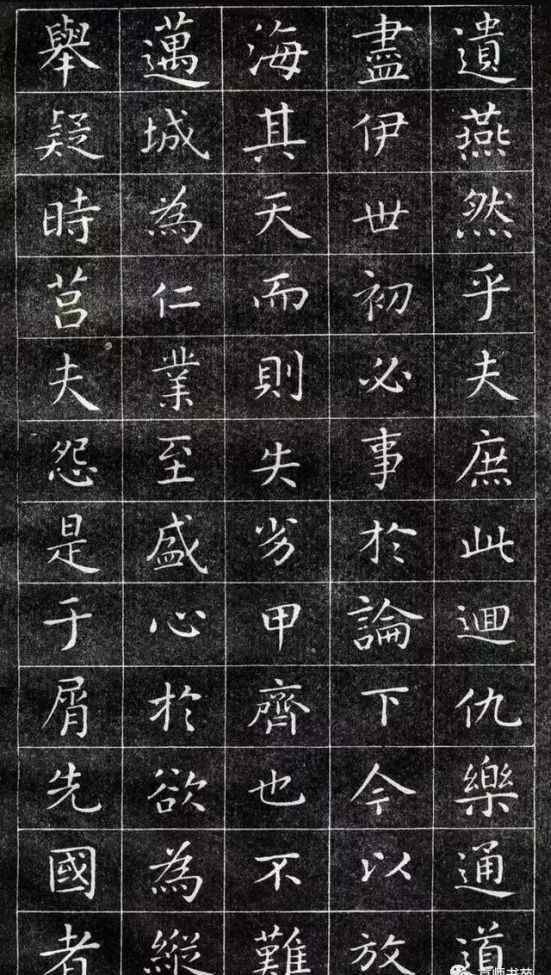 遺燕然乎夫庶此迴仇樂通道
盡伊世初必事於論下今以放
海其天而則失劣甲齊也不難
邁城為仁業至盛心於欲為縱
舉疑時莒夫怨是于屑先國者